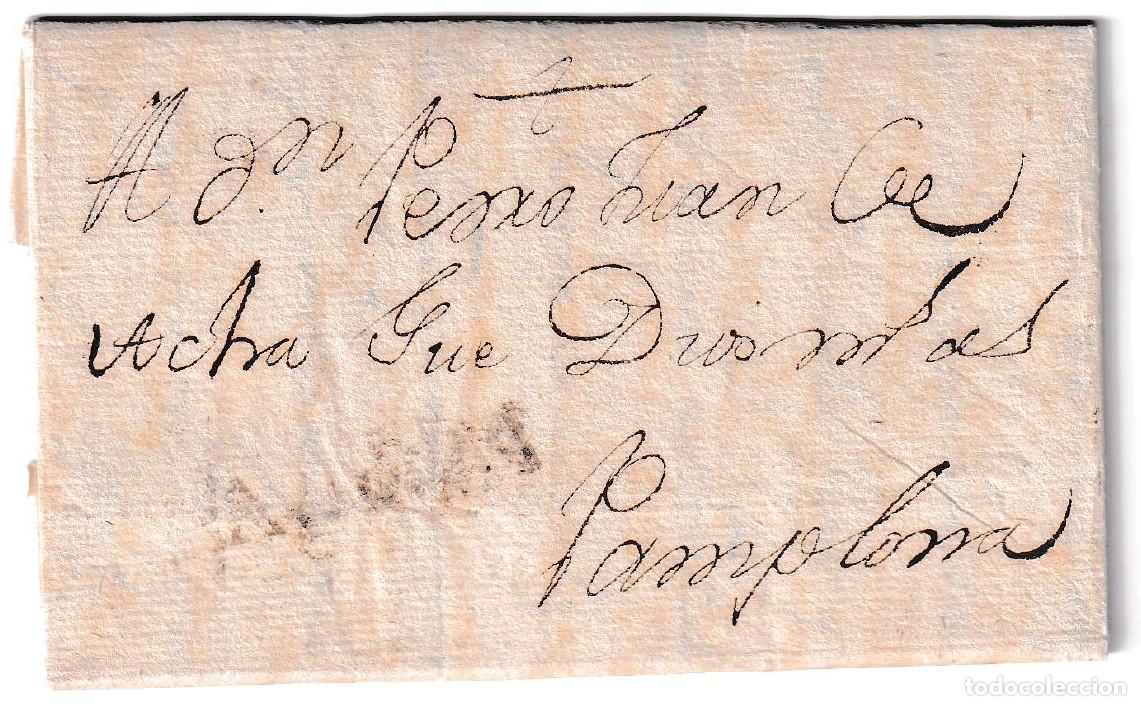 A Dn. Pedro Juan de
Acha Gue Dios ms as
Pamplona
todocoleccion